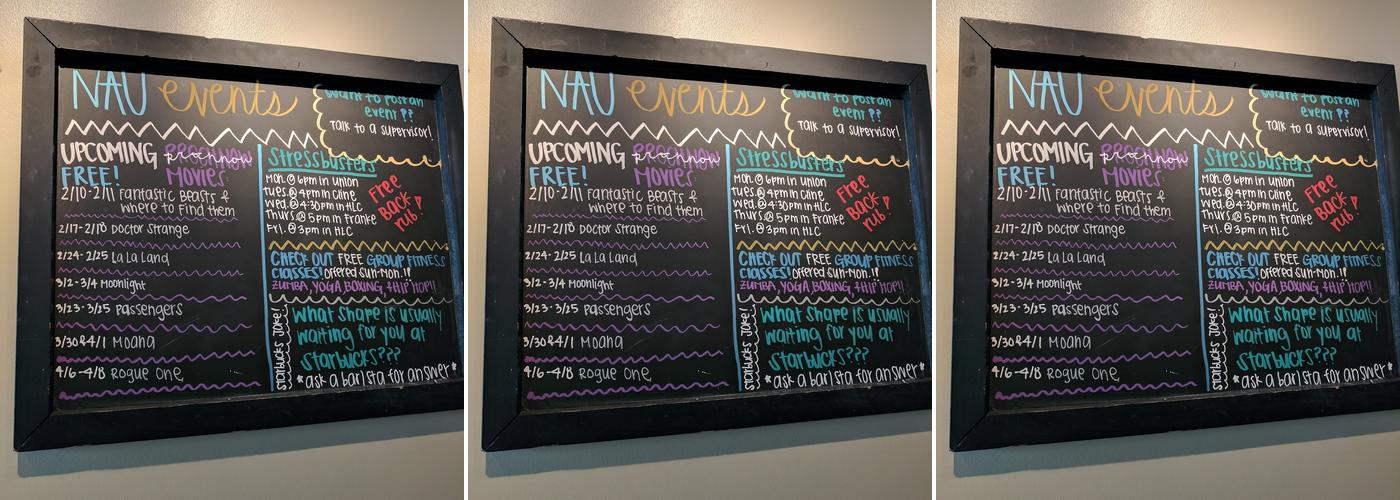 NAU events
want to post an
event ??
Talk to a supervisor!
UPCOMING prochnow
FREE! MOVIES:
2/10-2/11 Fantastic Beasts &
where to Find them
2/17-2/18 Doctor Strange
2/24-2/25 La La Land
3/2-3/4 Moonlight
3/23-3/25 Passengers
3/30&4/1 Moana
4/6-4/8 Rogue One
Stressbusters
Mon. @ 6pm in Union
tues.@ 4pm in Cline
Wed.@ 4:30pm in HLC
Thurs.@ 5pm in Franke
Fri. @ 3pm in HLC
Free
Back
rub!
CHECK OUT FREE GROUP FITNESS
CLASSES! Offered Sun-Mon.!!
ZUMBA, YOGA, BOXING, +HIP HOP!!
Starbucks Joke!
What shape is usually
waiting for you at
Starbucks???
*ask a barista for answer*
NAU events
want to post an
event ??
Talk to a supervisor!
UPCOMING prochnow
FREE! MOVIES:
2/10-2/11 Fantastic Beasts &
where to Find them
2/17-2/18 Doctor Strange
2/24-2/25 La La Land
3/2-3/4 Moonlight
3/23-3/25 Passengers
3/30&4/1 Moana
4/6-4/8 Rogue One
Stressbusters
Mon. @ 6pm in Union
tues.@ 4pm in Cline
Wed.@ 4:30pm in HLC
Thurs.@ 5pm in Franke
Fri. @ 3pm in HLC
Free
Back
rub!
CHECK OUT FREE GROUP FITNESS
CLASSES! Offered Sun-Mon.!!
ZUMBA, YOGA, BOXING, +HIP HOP!!
Starbucks Joke!
What shape is usually
waiting for you at
Starbucks???
*ask a barista for answer*
NAU events
want to post an
event ??
Talk to a supervisor!
UPCOMING prochnow
FREE! MOVIES:
2/10-2/11 Fantastic Beasts &
where to Find them
2/17-2/18 Doctor Strange
2/24-2/25 La La Land
3/2-3/4 Moonlight
3/23-3/25 Passengers
3/30&4/1 Moana
4/6-4/8 Rogue One
Stressbusters
Mon. @ 6pm in Union
tues.@ 4pm in Cline
Wed.@ 4:30pm in HLC
Thurs.@ 5pm in Franke
Fri. @ 3pm in HLC
Free
Back
rub!
CHECK OUT FREE GROUP FITNESS
CLASSES! Offered Sun-Mon.!!
ZUMBA, YOGA, BOXING, +HIP HOP!!
Starbucks Joke!
What shape is usually
waiting for you at
Starbucks???
*ask a barista for answer*